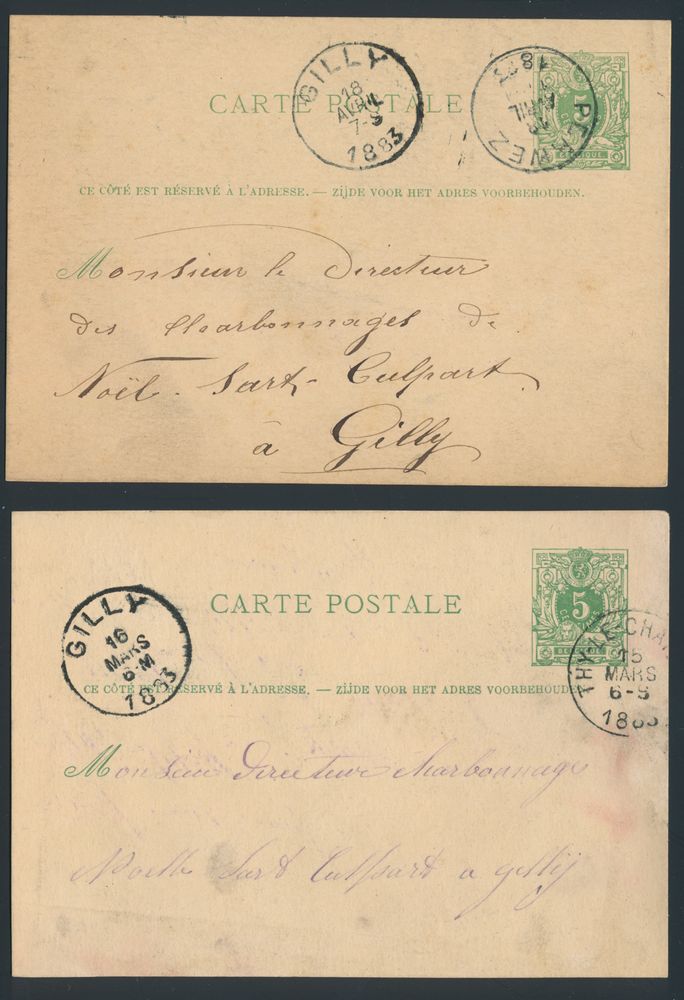 CARTE POSTALE
GILLY
18
AVRIL
7-S
1883
PERWEZ
AVRIL
BELGIQUE
CE CÔTÉ EST RÉSERVÉ À L'ADRESSE. — ZIJDE VOOR HET ADRES VOORBEHOUDEN.
Monsieur le Directeur
des Charbonnages de
Noël-Sart-Culpart
à Gilly
5
CARTE POSTALE
GILLY
16
MARS
6-M
1883
THY-LE-CHA
15
MARS
6-S
1883
CE CÔTÉ EST RÉSERVÉ À L'ADRESSE. — ZIJDE VOOR HET ADRES VOORBEHOUDEN
Monsieur Directeure Charbonnages
Noelle Sart Culpart a gillij